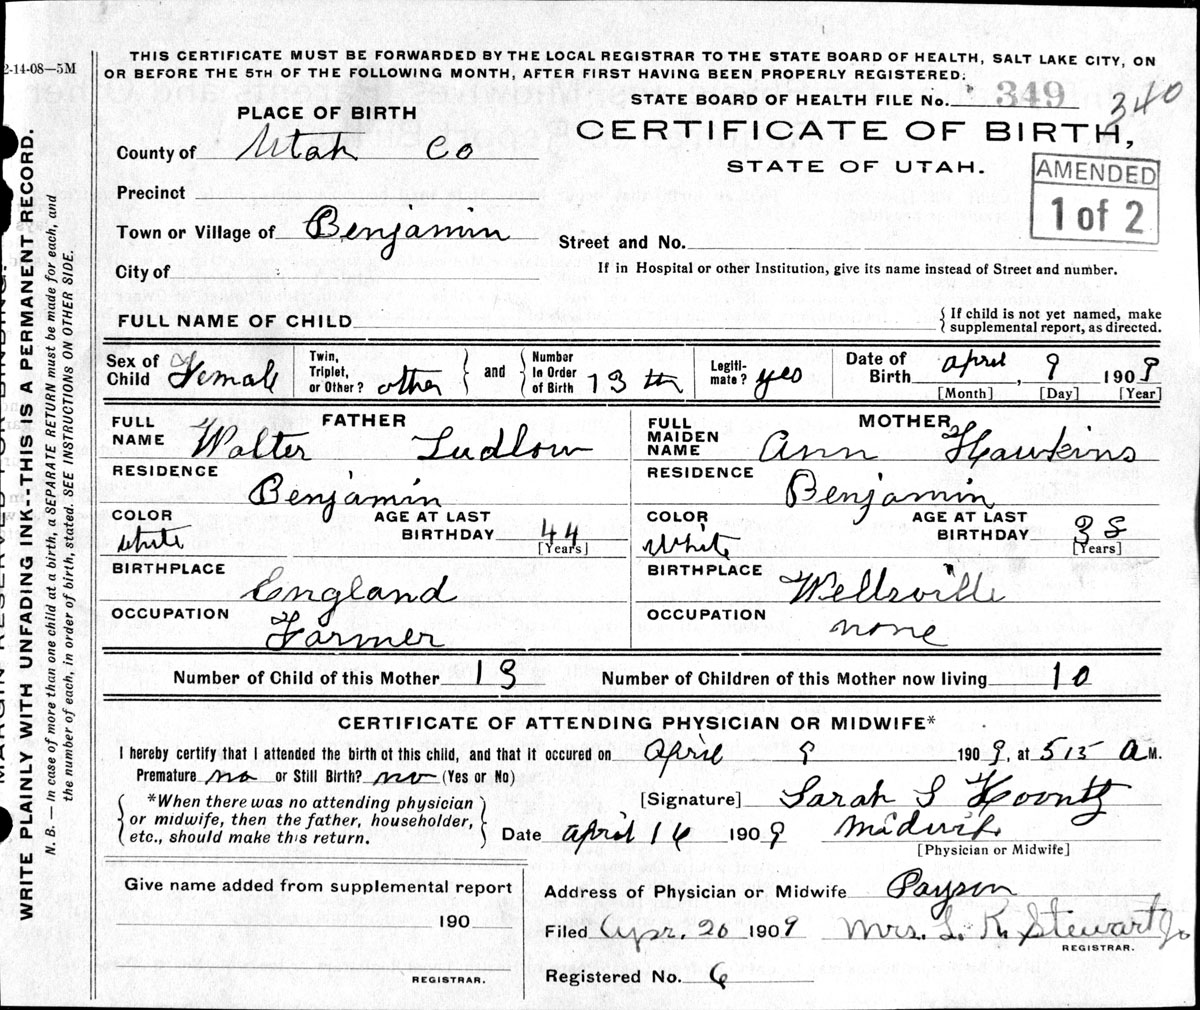 2-14-08—5M
THIS CERTIFICATE MUST BE FORWARDED BY THE LOCAL REGISTRAR TO THE STATE BOARD OF HEALTH, SALT LAKE CITY, ON
OR BEFORE THE 5TH OF THE FOLLOWING MONTH, AFTER FIRST HAVING BEEN PROPERLY REGISTERED.
STATE BOARD OF HEALTH FILE No. 349 340
PLACE OF BIRTH
CERTIFICATE OF BIRTH,
STATE OF UTAH.
AMENDED
1 of 2
County of Utah Co
Precinct
Town or Village of Benjamin
Street and No.
City of
If in Hospital or other Institution, give its name instead of Street and number.
FULL NAME OF CHILD
{ If child is not yet named, make
supplemental report, as directed.
Sex of Child Female
Twin, Triplet, or Other? other } and { Number In Order of Birth 13th
Legiti-mate? yes
Date of Birth April, 9 1909
[Month] [Day] [Year]
FATHER
FULL NAME Walter Ludlow
RESIDENCE
Benjamin
COLOR white
AGE AT LAST BIRTHDAY 44 [Years]
BIRTHPLACE
England
OCCUPATION
Farmer
MOTHER
FULL MAIDEN NAME Ann Hawkins
RESIDENCE
Benjamin
COLOR White
AGE AT LAST BIRTHDAY 38 [Years]
BIRTHPLACE
Wellsville
OCCUPATION
none
Number of Child of this Mother 13 Number of Children of this Mother now living 10
CERTIFICATE OF ATTENDING PHYSICIAN OR MIDWIFE*
I hereby certify that I attended the birth of this child, and that it occured on April 9 1909, at 515 A M.
Premature no or Still Birth? no (Yes or No)
{ *When there was no attending physician
or midwife, then the father, householder,
etc., should make this return. }
[Signature] Sarah S Koontz
Date April 16 1909 Midwife
[Physician or Midwife]
Give name added from supplemental report
190
REGISTRAR.
Address of Physician or Midwife Payson
Filed Apr. 20 1909 Mrs. L. R. Stewart Jr
REGISTRAR.
Registered No. 6
WRITE PLAINLY WITH UNFADING INK--THIS IS A PERMANENT RECORD.
N. B. — In case of more than one child at a birth, a SEPARATE RETURN must be made for each, and
the number of each, in order of birth, stated. SEE INSTRUCTIONS ON OTHER SIDE.